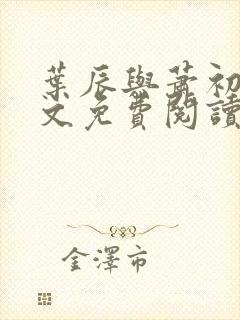 葉辰與蕭初
文免費閱讀
金澤市